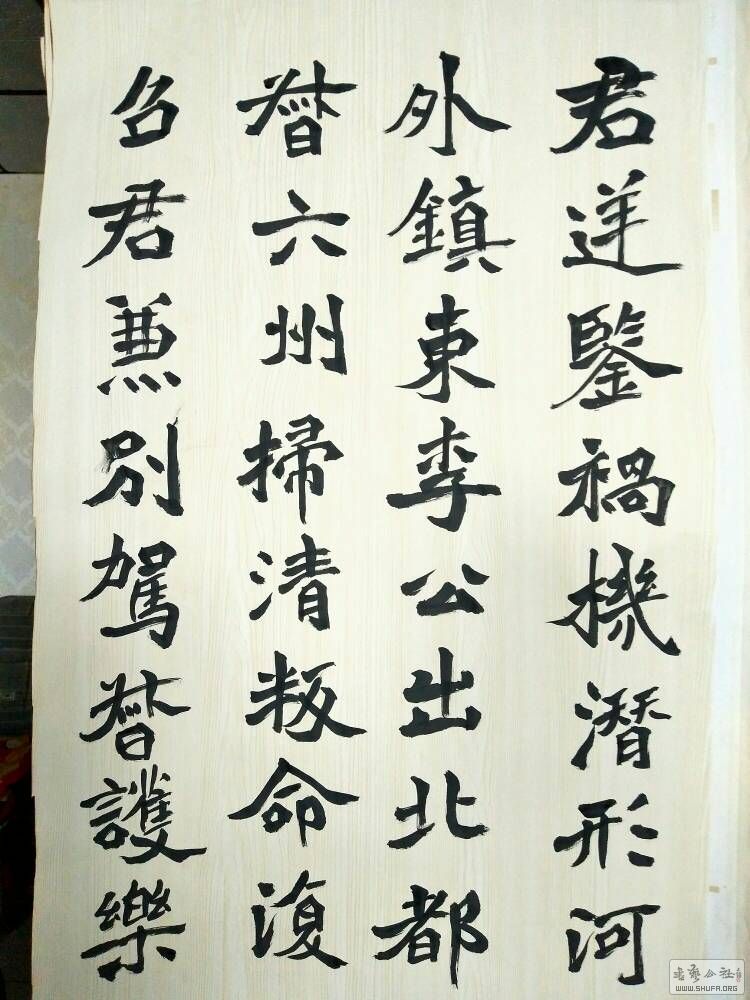 君逆鑒禍機潛形河
外鎮東李公出北都
督六州掃清叛命復
召君兼別駕督護樂
书藝公社
WWW.SHUFA.ORG